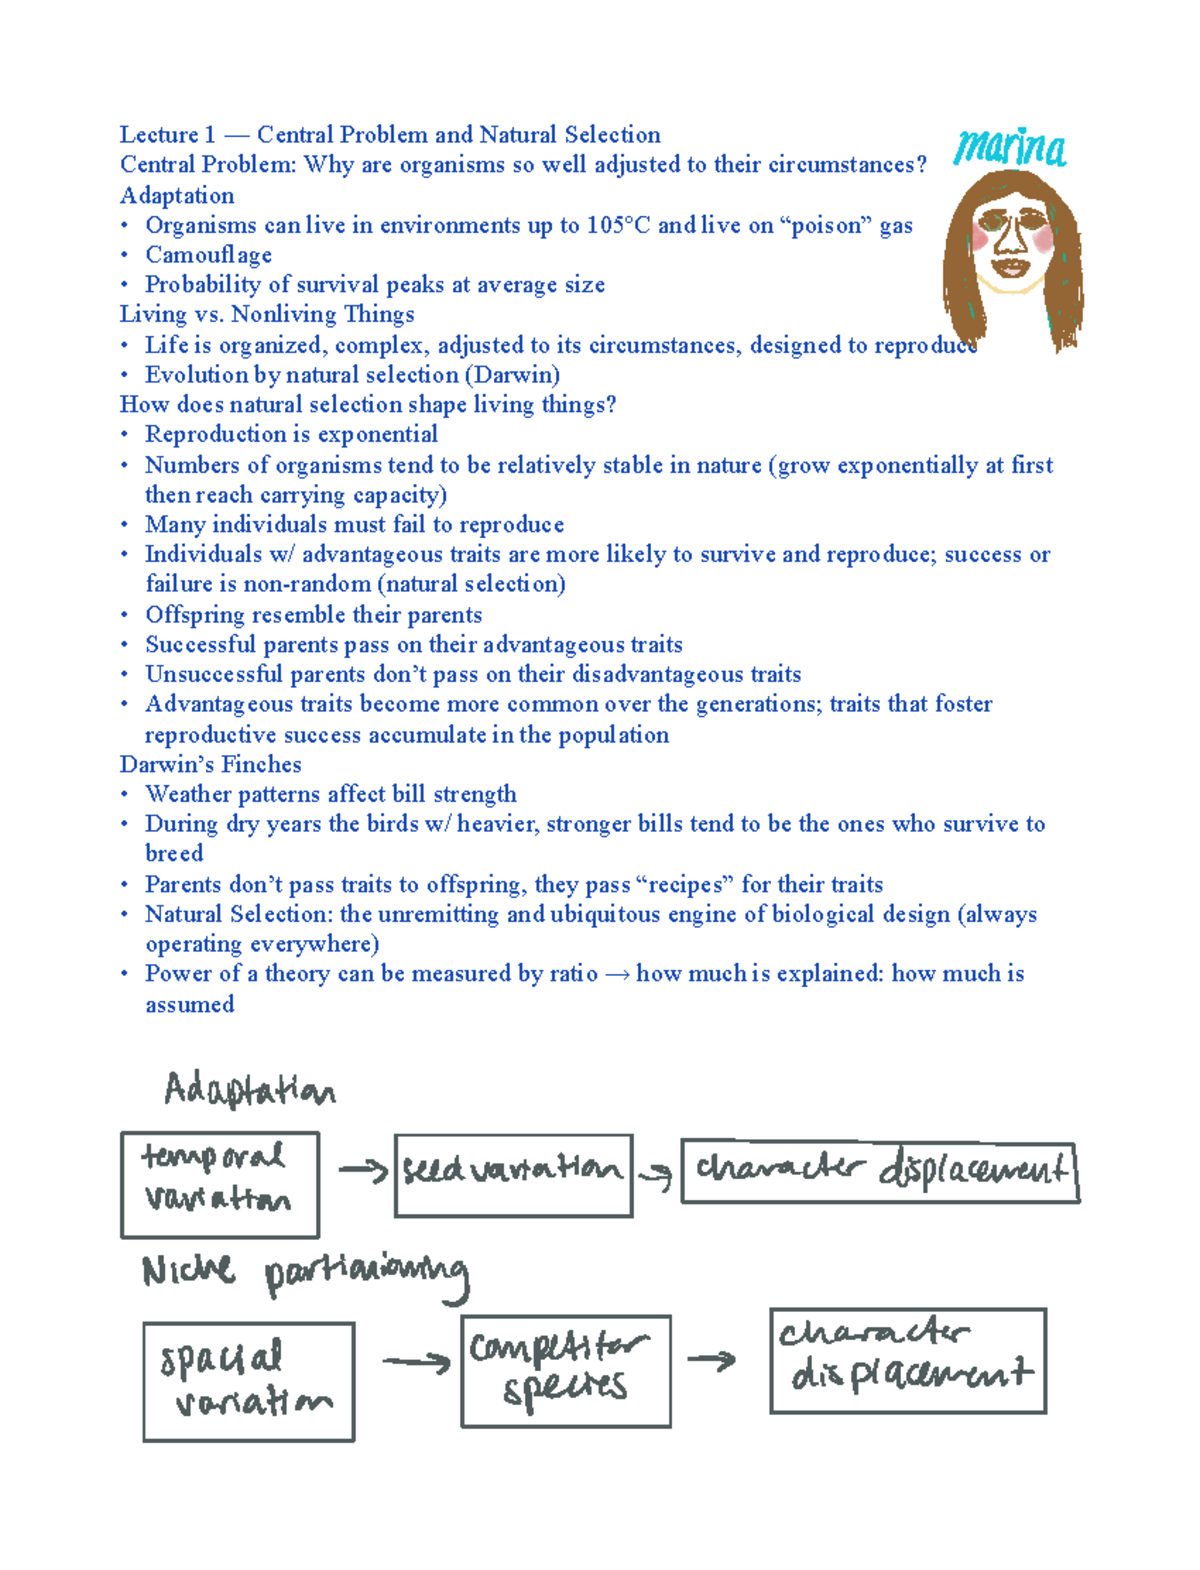 Lecture 1 — Central Problem and Natural Selection
marina
Central Problem: Why are organisms so well adjusted to their circumstances?
Adaptation
• Organisms can live in environments up to 105°C and live on “poison” gas
• Camouflage
• Probability of survival peaks at average size
Living vs. Nonliving Things
• Life is organized, complex, adjusted to its circumstances, designed to reproduce
• Evolution by natural selection (Darwin)
How does natural selection shape living things?
• Reproduction is exponential
• Numbers of organisms tend to be relatively stable in nature (grow exponentially at first
then reach carrying capacity)
• Many individuals must fail to reproduce
• Individuals w/ advantageous traits are more likely to survive and reproduce; success or
failure is non-random (natural selection)
• Offspring resemble their parents
• Successful parents pass on their advantageous traits
• Unsuccessful parents don’t pass on their disadvantageous traits
• Advantageous traits become more common over the generations; traits that foster
reproductive success accumulate in the population
Darwin’s Finches
• Weather patterns affect bill strength
• During dry years the birds w/ heavier, stronger bills tend to be the ones who survive to
breed
• Parents don’t pass traits to offspring, they pass “recipes” for their traits
• Natural Selection: the unremitting and ubiquitous engine of biological design (always
operating everywhere)
• Power of a theory can be measured by ratio → how much is explained: how much is
assumed
Adaptation
temporal
variation
→ seed variation → character displacement
Niche partitioning
spacial
variation
→ competitor
species
→ character
displacement